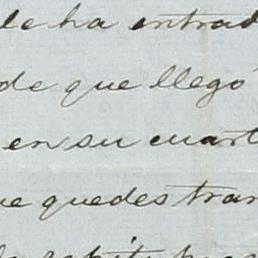 le ha entrad
de que llegó
en su cuart
ue quedes tran